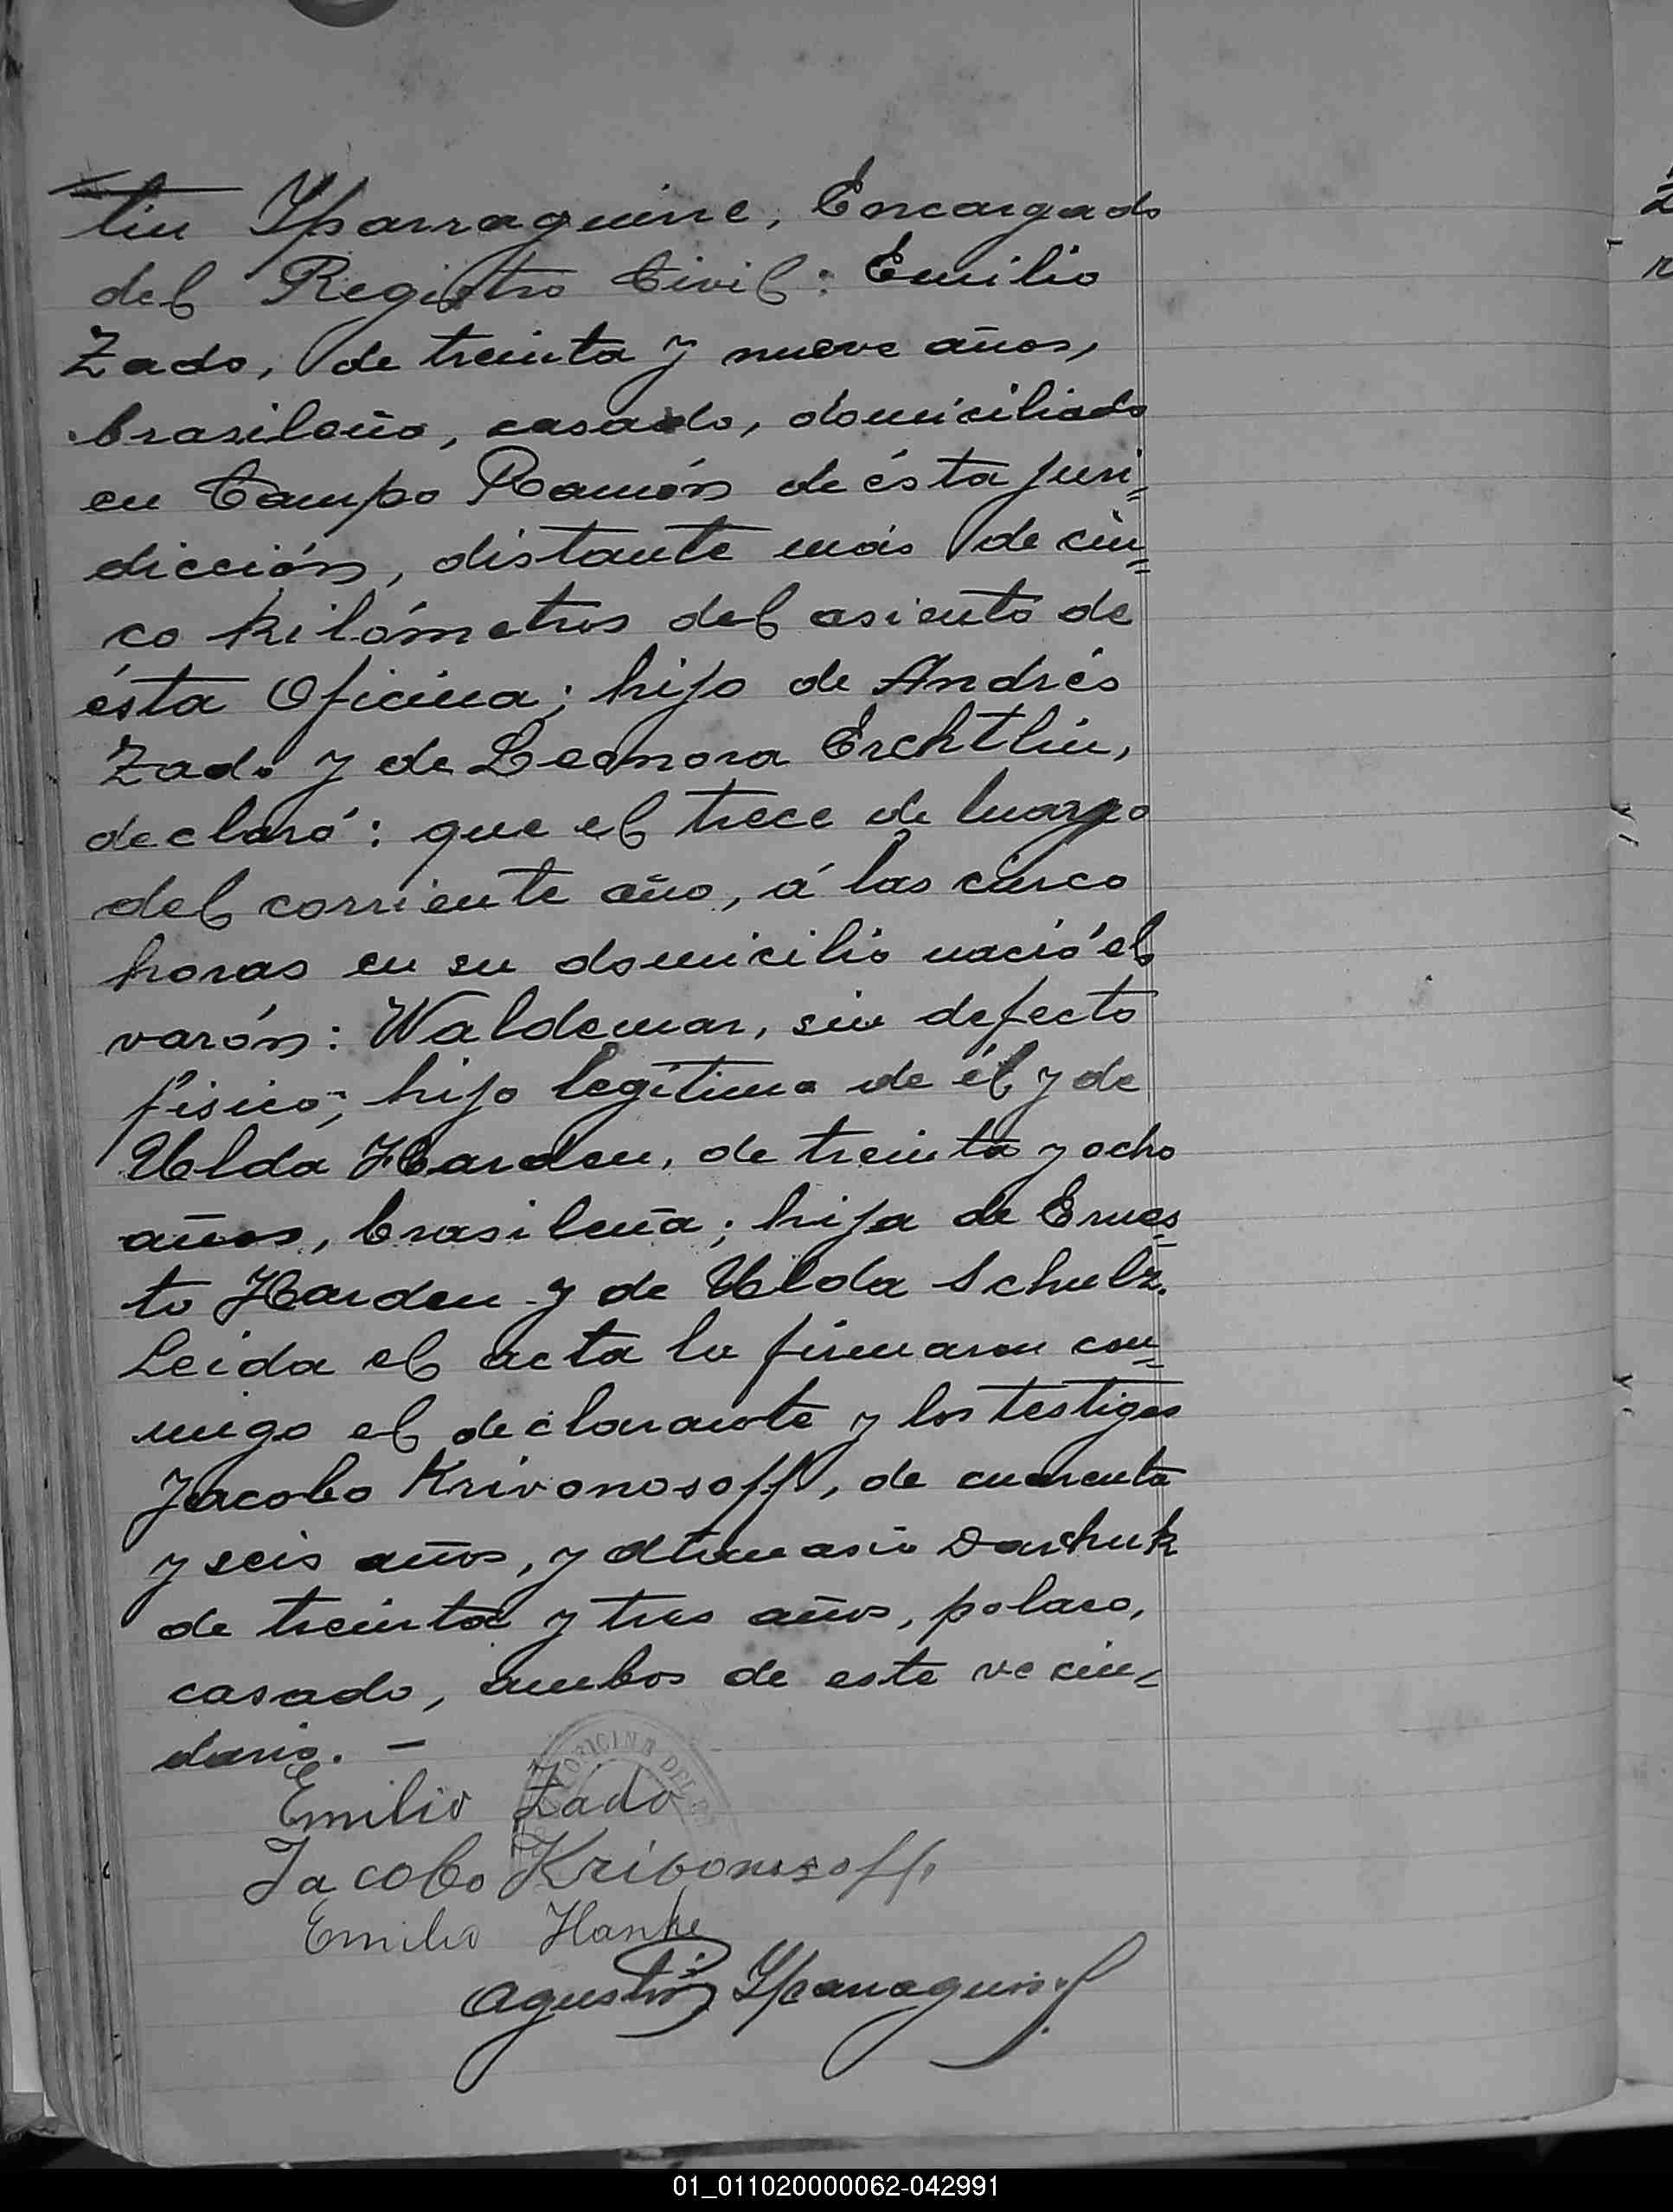 tin Yparraguirre, Encargado
del Registro Civil: Emilio
Zado, de treinta y nueve años,
brasileño, casado, domiciliado
en Campo Ramón de ésta juri=
dicción, distante más de cin=
co kilómetros del asiento de
ésta Oficina; hijo de Andrés
Zado y de Leonora Erchtlin,
declaró: que el trece de marzo
del corriente año, á las cinco
horas en su domicilio nació el
varón: Waldemar, sin defecto
físico; hijo legítimo de él y de
Ulda Harden, de treinta y ocho
años, brasileña; hija de Ernes=
to Harden y de Ulda Schulz.
Leida el acta la firmaron con=
migo el declarante y los testigos
Jacobo Krivonosoff, de cuarenta
y seis años, y Atanasio Darchuk
de treinta y tres años, polaco,
casado, ambos de este vecin-
dario. —
OFICINA DEL
Emilio Zado
Jacobo Krivonosoff
Emilio Hanke
Agustín Yparraguirre
01_011020000062-042991